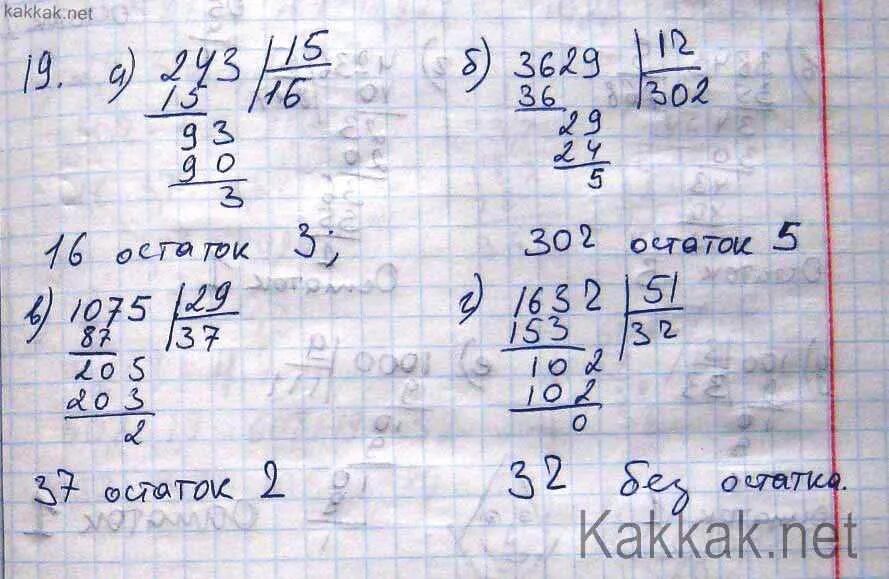 kakkak.net
19. а) 243 | 15 б) 3629 | 12
15 16 36 302
93 29
90 24
3 5
16 остаток 3; 302 остаток 5
в) 1075 | 29 г) 1632 | 51
87 37 153 32
205 102
203 102
2 0
37 остаток 2 32 без остатка.
Kakkak.net